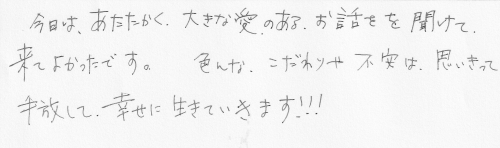 今日は、あたたかく、大きな愛のある、お話をを聞けて、
来てよかったです。　色んな、こだわりや不安は、思いきって
手放して、幸せに生きていきます!!!